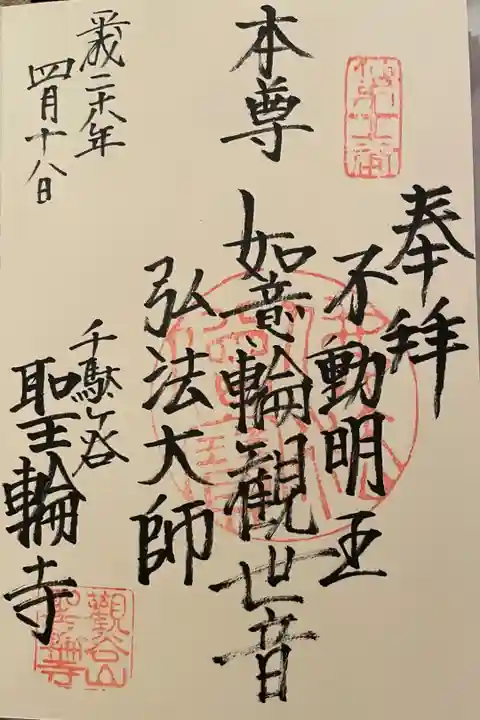 奉拝
不動明王
本尊 如意輪観世音
弘法大師
平成二十八年
四月十八日
千駄ヶ谷
聖輪寺
觀谷山
聖輪寺